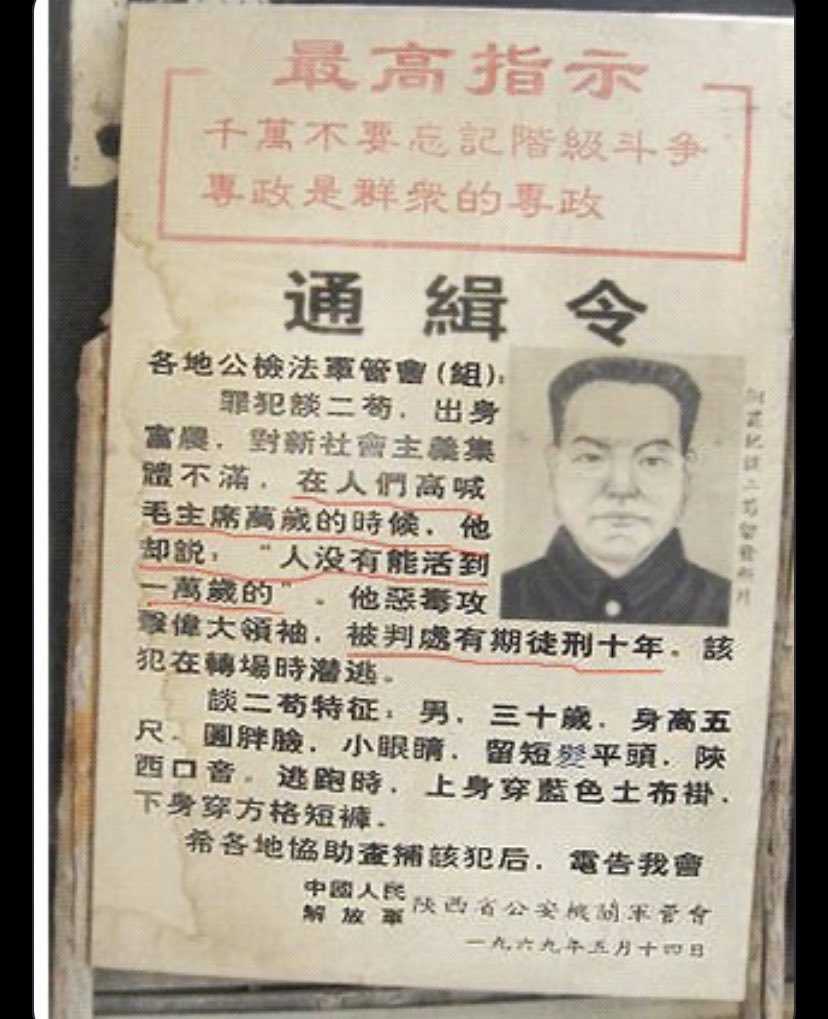 最高指示
千萬不要忘記階級斗争
專政是群衆的專政
通緝令
各地公檢法軍管會(組):
罪犯談二苟，出身
富農，對新社會主義集
體不滿，在人們高喊
毛主席萬歲的時候，他
却説：“人没有能活到
一萬歲的”。他惡毒攻
擊偉大領袖，被判處有期徒刑十年。該
犯在轉場時潛逃。
談二苟特征：男，三十歲，身高五
尺，圓胖臉，小眼睛，留短髮平頭，陝
西口音。逃跑時，上身穿藍色土布褂，
下身穿方格短褲。
希各地協助查捕該犯后，電告我會
中國人民
解放軍 陝西省公安機關軍管會
一九六九年五月十四日
犯談二苟留發